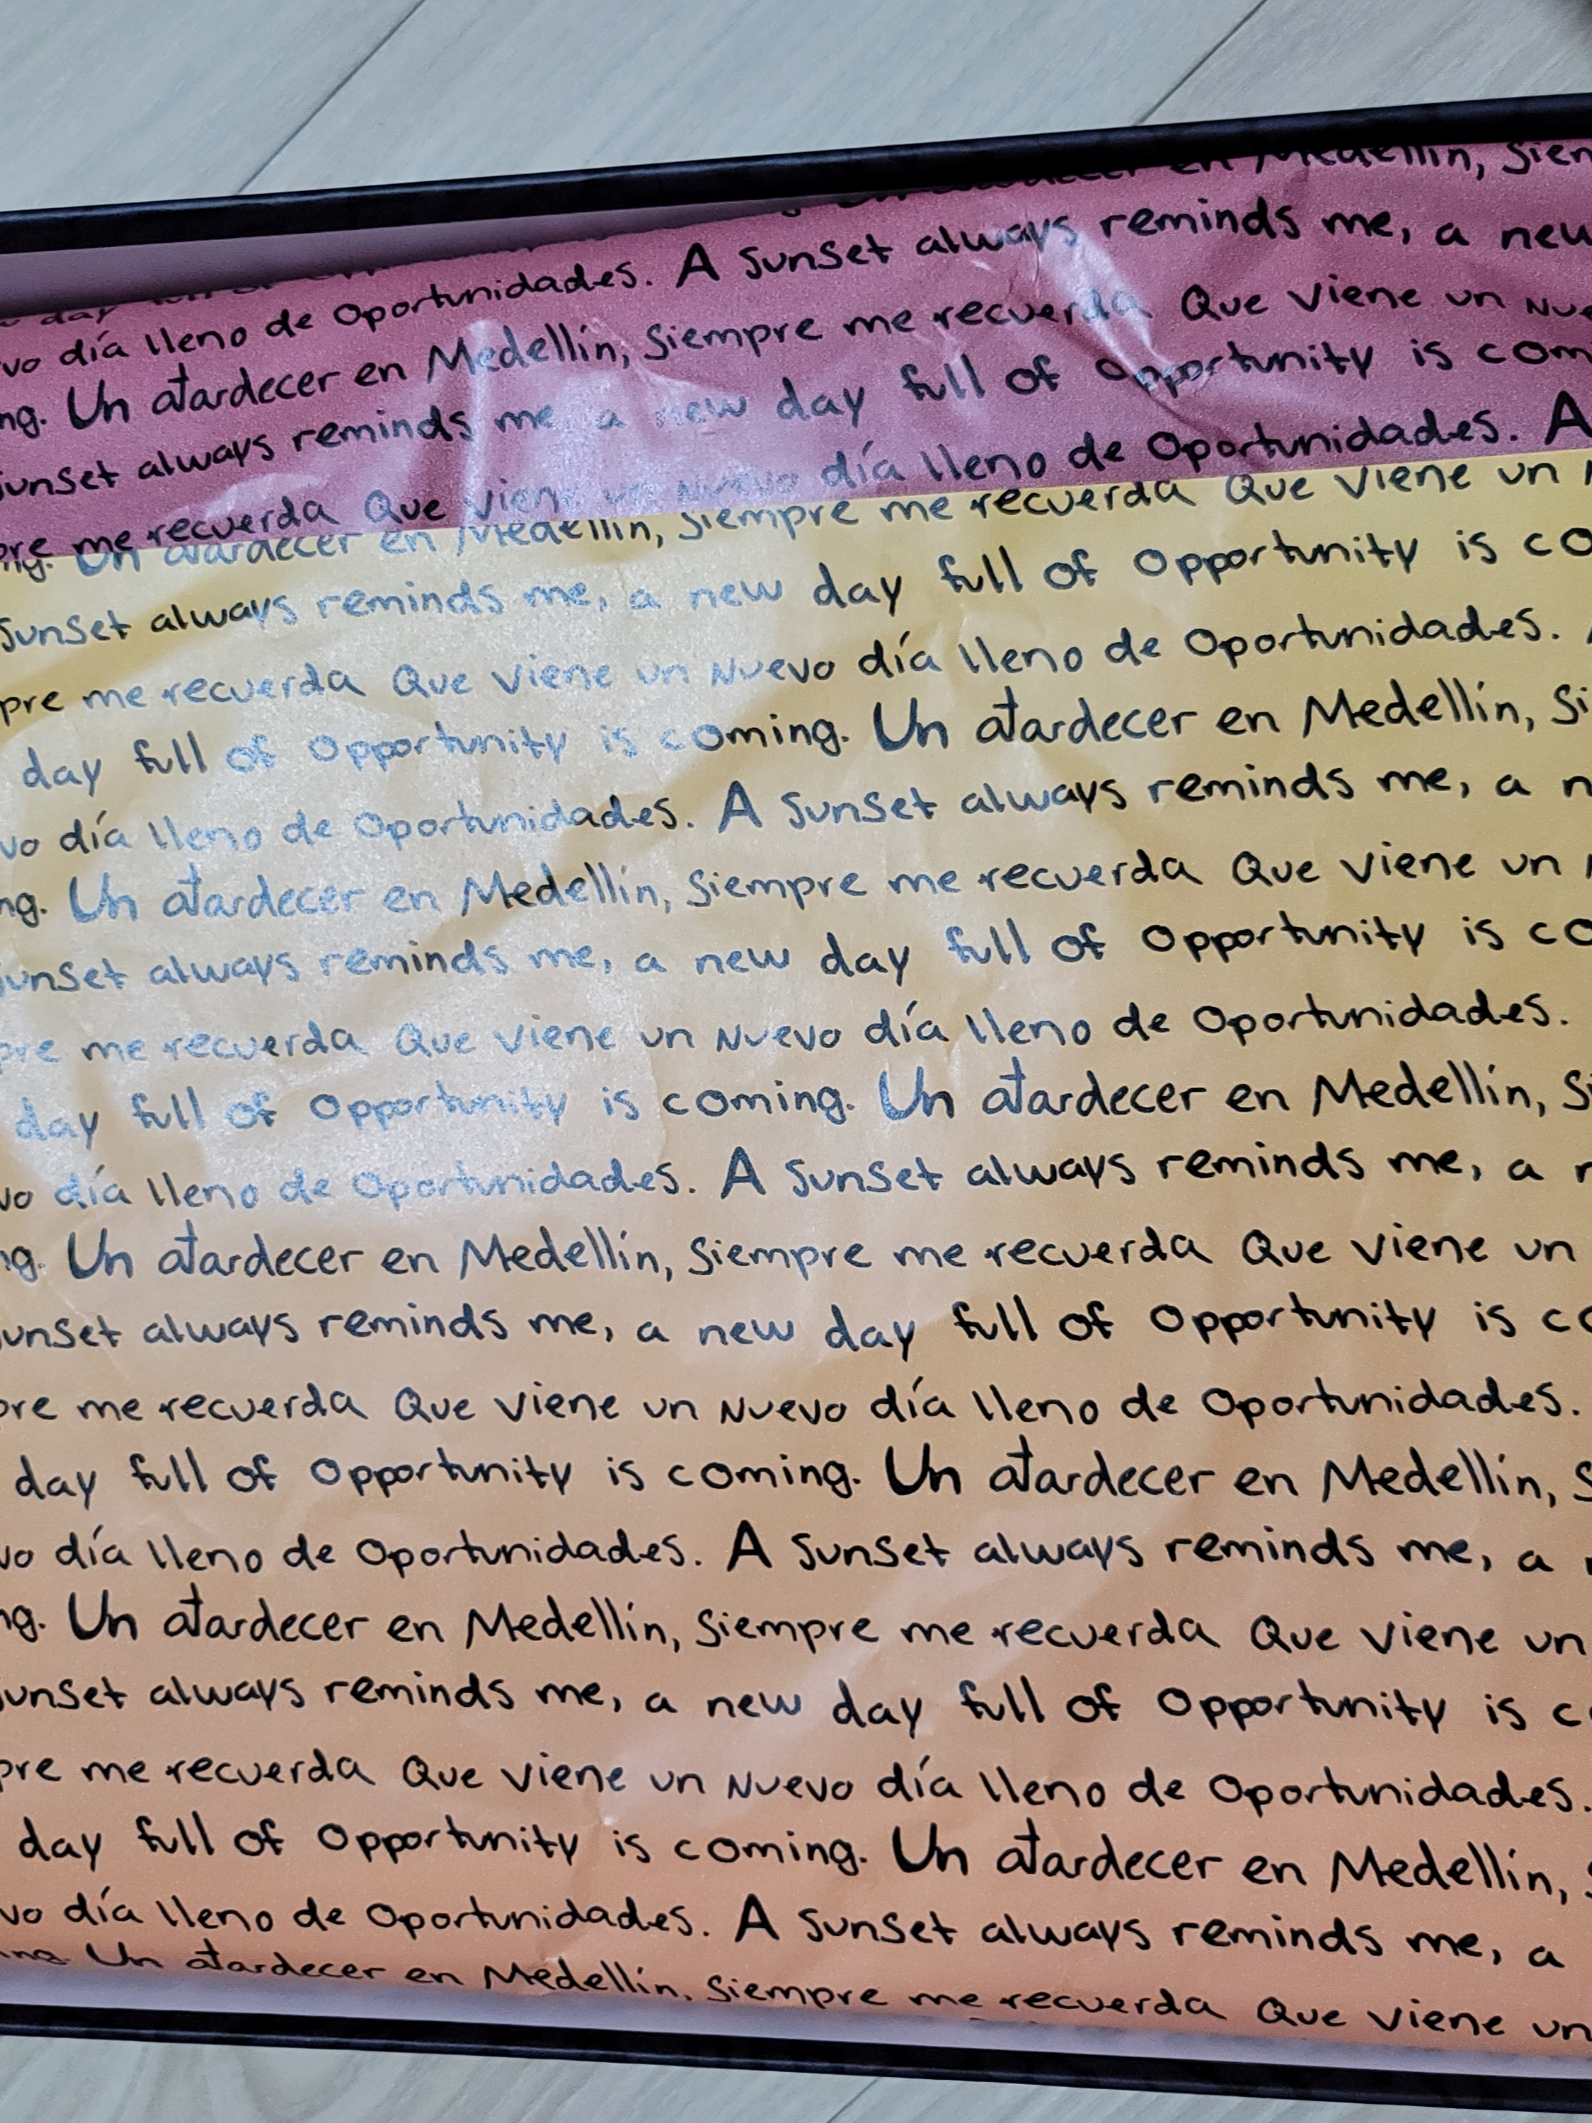 en Medellín, Sien
day
vo día lleno de Oportunidades. A Sunset always reminds me, a new
ng. Un atardecer en Medellín, Siempre me recuerda Que Viene un Nue
Sunset always reminds me a new day full of Opportunity is com
pre me recuerda Que Viene un Nuevo día lleno de Oportunidades. A
ng. Un atardecer en Medellín, Siempre me recuerda Que Viene un
Sunset always reminds me, a new day full of Opportunity is co
pre me recuerda Que Viene un Nuevo día lleno de Oportunidades.
day full of Opportunity is coming. Un atardecer en Medellín, Si
vo día lleno de Oportunidades. A Sunset always reminds me, a n
ng. Un atardecer en Medellín, Siempre me recuerda Que Viene un
Sunset always reminds me, a new day full of Opportunity is co
pre me recuerda Que Viene un Nuevo día lleno de Oportunidades.
day full of Opportunity is coming. Un atardecer en Medellín, Si
vo día lleno de Oportunidades. A Sunset always reminds me, a
ng. Un atardecer en Medellín, Siempre me recuerda Que Viene un
unset always reminds me, a new day full of Opportunity is co
ore me recuerda Que Viene un Nuevo día lleno de Oportunidades.
day full of Opportunity is coming. Un atardecer en Medellín, S
vo día lleno de Oportunidades. A Sunset always reminds me, a
ng. Un atardecer en Medellín, Siempre me recuerda Que Viene un
unset always reminds me, a new day full of Opportunity is c
pre me recuerda Que Viene un Nuevo día lleno de Oportunidades.
day full of Opportunity is coming. Un atardecer en Medellín,
vo día lleno de Oportunidades. A Sunset always reminds me, a
ing. Un atardecer en Medellín, Siempre me recuerda Que Viene un